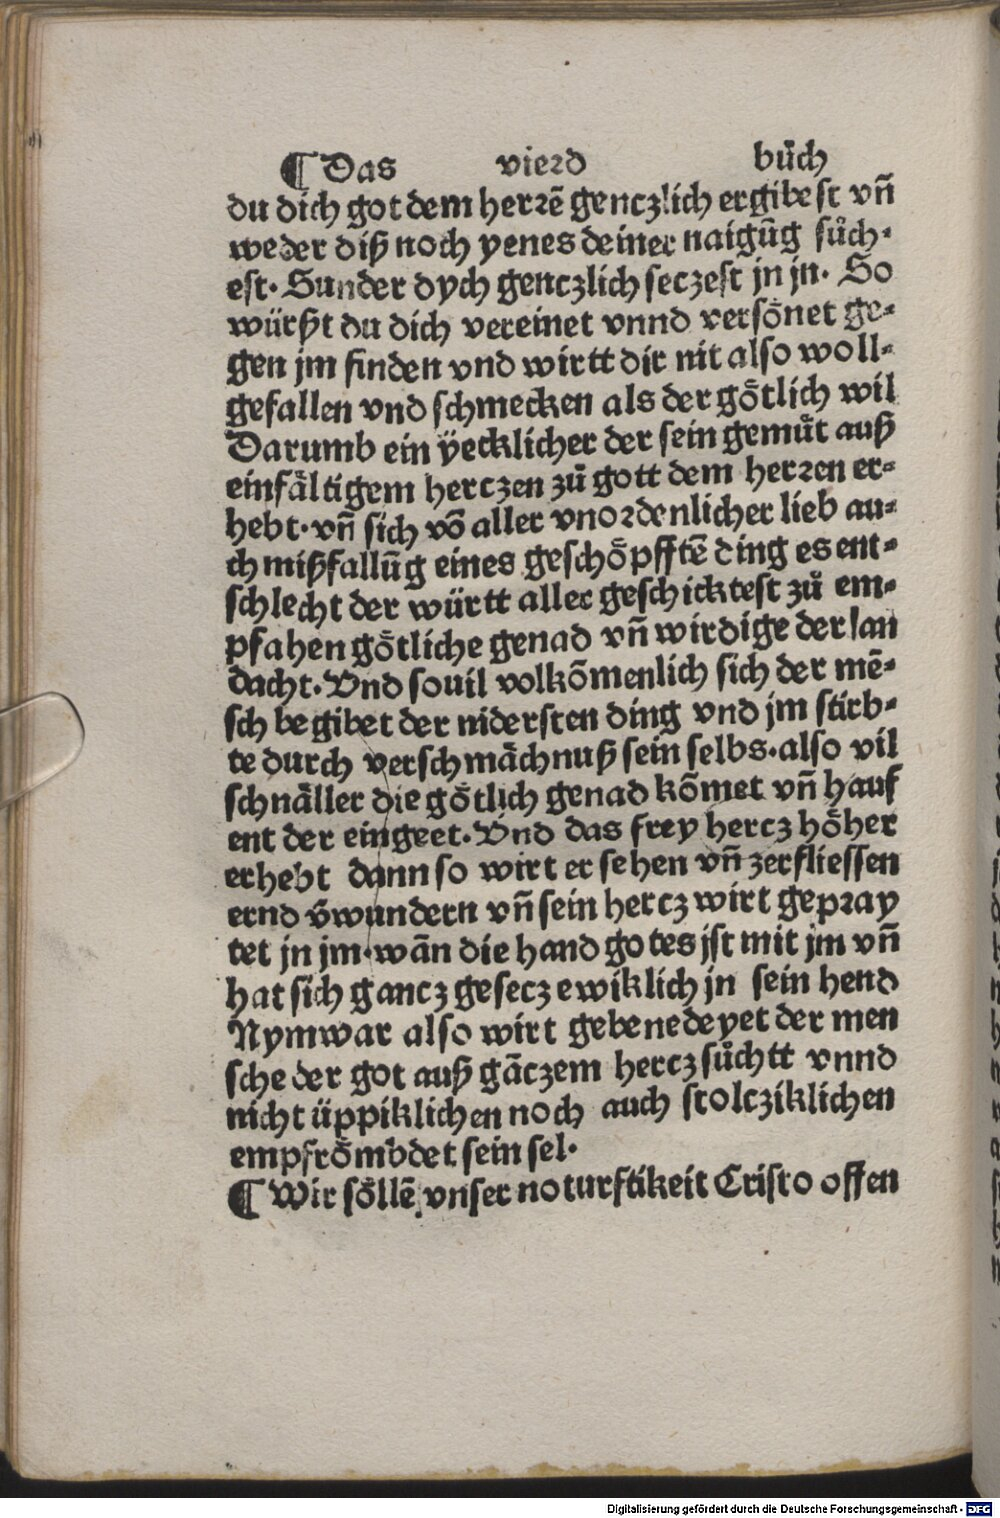 ¶ Das vierd bůch
du dich got dem herrē genczlich ergibest vn̄
weder diß noch yenes deiner naigūg sůch-
est. Sunder dych genczlich seczest jn jn. So
würßt du dich vereinet vnnd versönet ge-
gen jm finden vnd wirtt dir nit also woll-
gefallen vnd schmecken als der götlich wil
Darumb ein yecklicher der sein gemůt auß
einfältigem herczen zů gott dem herren er-
hebt. vn̄ sich vō aller vnordenlicher lieb au-
ch mißfallūg eines geschöpfftē ding es ent-
schlecht der württ aller geschicktest zů em-
pfahen götliche genad vn̄ wirdige der an
dacht. Vnd souil volkōmenlich sich der mē-
sch begibet der nidersten ding vnd jm stirb-
te durch verschmächnuß sein selbs. also vil
schnäller die götlich genad kōmet vn̄ hauf
ent der eingeet. Vnd das frey hercz höher
erhebt dann so wirt er sehen vn̄ zerfliessen
ernd v̄wundern vn̄ sein hercz wirt gepray
tet jn jm. wān die hand gotes jst mit jm vn̄
hat sich gancz gesecz ewiklich jn sein hend
Nymwar also wirt gebenedeyet der men
sche der got auß gāczem hercz sůchtt vnnd
nicht üppiklichen noch auch stolcziklichen
empfrömbdet sein sel.
¶ Wir söllē vnser noturftikeit Cristo offen
Digitalisierung gefördert durch die Deutsche Forschungsgemeinschaft - DFG